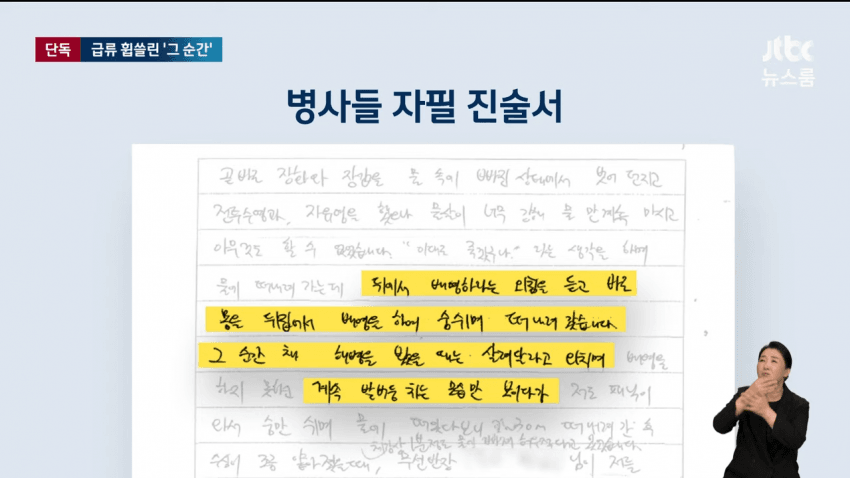 단독 급류 휩쓸린 '그 순간'
jtbc
뉴스룸
병사들 자필 진술서
곧바로 장화와 장갑을 물 속에 빠진 상태에서 벗어 던지고
전투수영과, 자유영을 했으나 물살이 너무 강해 물 만 계속 마시고
아무것도 할 수 없었습니다. "이대로 죽겠구나." 라는 생각을 하며
물에 떠내려 가는데 뒤에서 배영하라는 외침을 듣고 바로
몸을 뒤집어서 배영을 하여 숨쉬며 떠내려 갔습니다.
그 순간 채 해병을 봤을 때는 살려달라고 외치며 배영을
하지 못하고 계속 발버둥 치는 모습만 보이다가 저도 패닉이
와서 숨만 쉬며 물에 떠있다보니 떠내려 간 후
체감상 1분정도 물이
수심이 조금 얕아졌을때, 무선반장 님이 저를